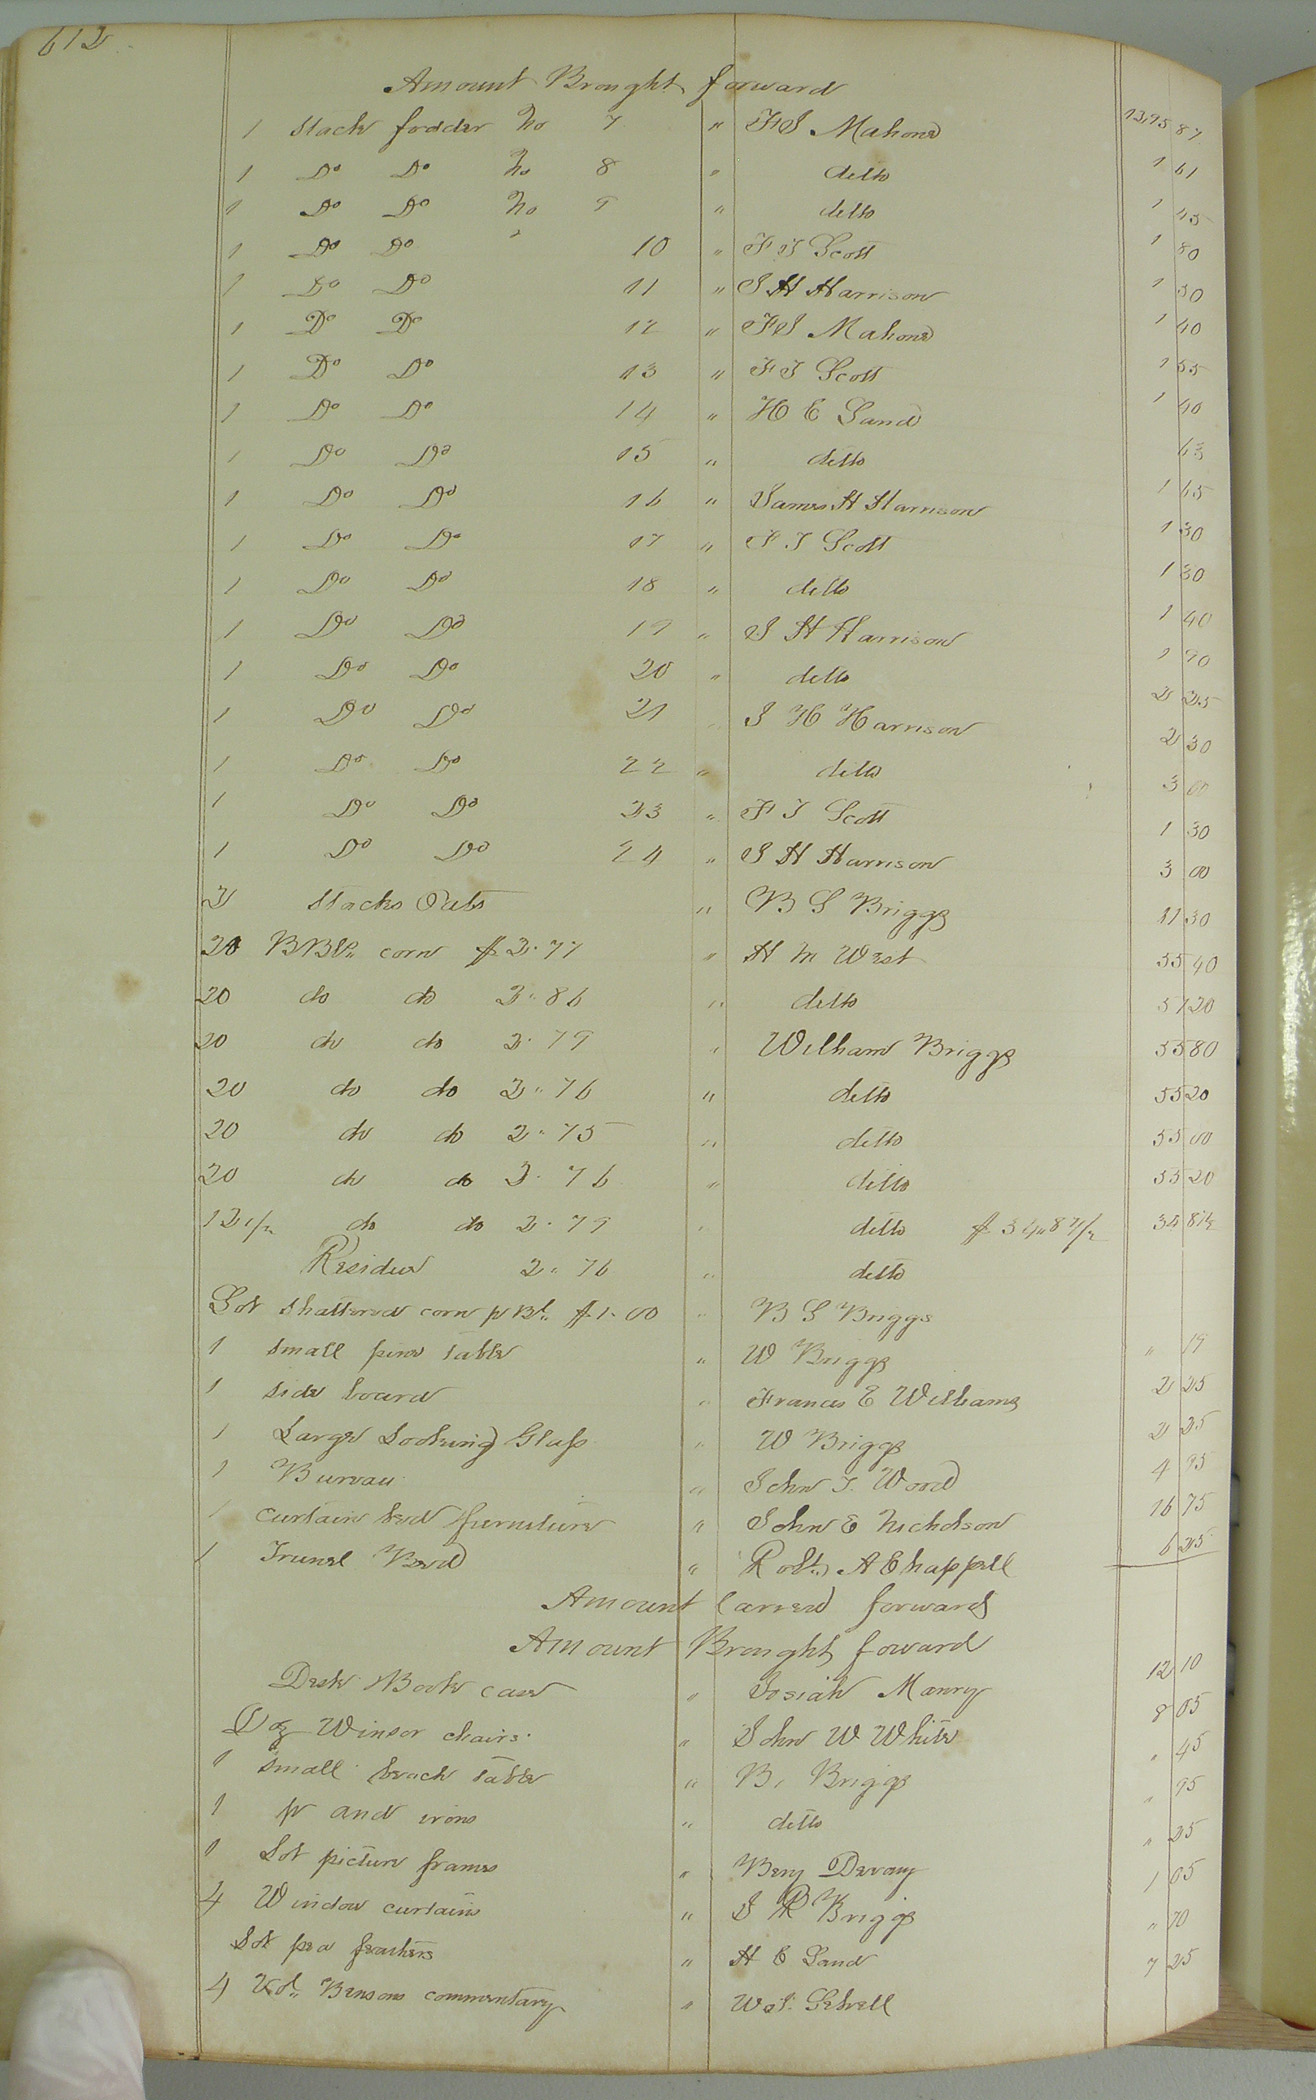 612
Amount Brought forward 1395 87
1 Stack fodder No 7 " F S Mahone 1 61
1 Do Do No 8 " ditto 1 45
1 Do Do No 9 " ditto 1 80
1 Do Do " 10 " F T Scott 1 50
1 Do Do 11 " J H Harrison 1 40
1 Do Do 12 " F S Mahone 1 55
1 Do Do 13 " F T Scott 1 40
1 Do Do 14 " H E Land 63
1 Do Do 15 " ditto 1 65
1 Do Do 16 " James H Harrison 1 30
1 Do Do 17 " F T Scott 1 30
1 Do Do 18 " ditto 1 40
1 Do Do 19 " J H Harrison 1 90
1 Do Do 20 " ditto 2 25
1 Do Do 21 J H Harrison 2 30
1 Do Do 22 " ditto 3 00
1 Do Do 23 " F T Scott 1 30
1 Do Do 24 " J H Harrison 3 00
2 Stacks Oats " B S Briggs 11 30
20 BBls corn $2.77 " H M West 55 40
20 do do 2.86 " ditto 57 20
20 do do 2.79 " William Briggs 55 80
20 do do 2.76 " ditto 55 20
20 do do 2.75 " ditto 55 00
20 do do 2.76 " ditto 55 20
12 1/2 do do 2.79 " ditto $34.87 1/2 34 87 1/2
Residue 2.76 " ditto
Lot shattered corn pr Bl $1.00 " B S Briggs
1 small pine table " W Briggs " 19
1 side board " Francis E Williams 2 25
1 Large Looking Glass " W Briggs 2 25
1 Bureau " John T. Wood 4 95
1 curtain bed & furniture " John E Nicholson 16 75
1 Trunel Bed " Robt A Chappell 6 25
Amount Carried forward
Amount Brought forward
Desk & Book case " Josiah Manry 12 10
Doz Winsor chairs " John W White 8 05
1 small beach table " B. Briggs " 45
1 pr and irons " ditto " 95
1 Lot picture frames " Benj Devany " 25
4 Window curtains " J R Briggs 1 05
Lot pea feathers " H E Land " 70
4 Vol. Bensons commentary " Wat. Sebrell 7 25